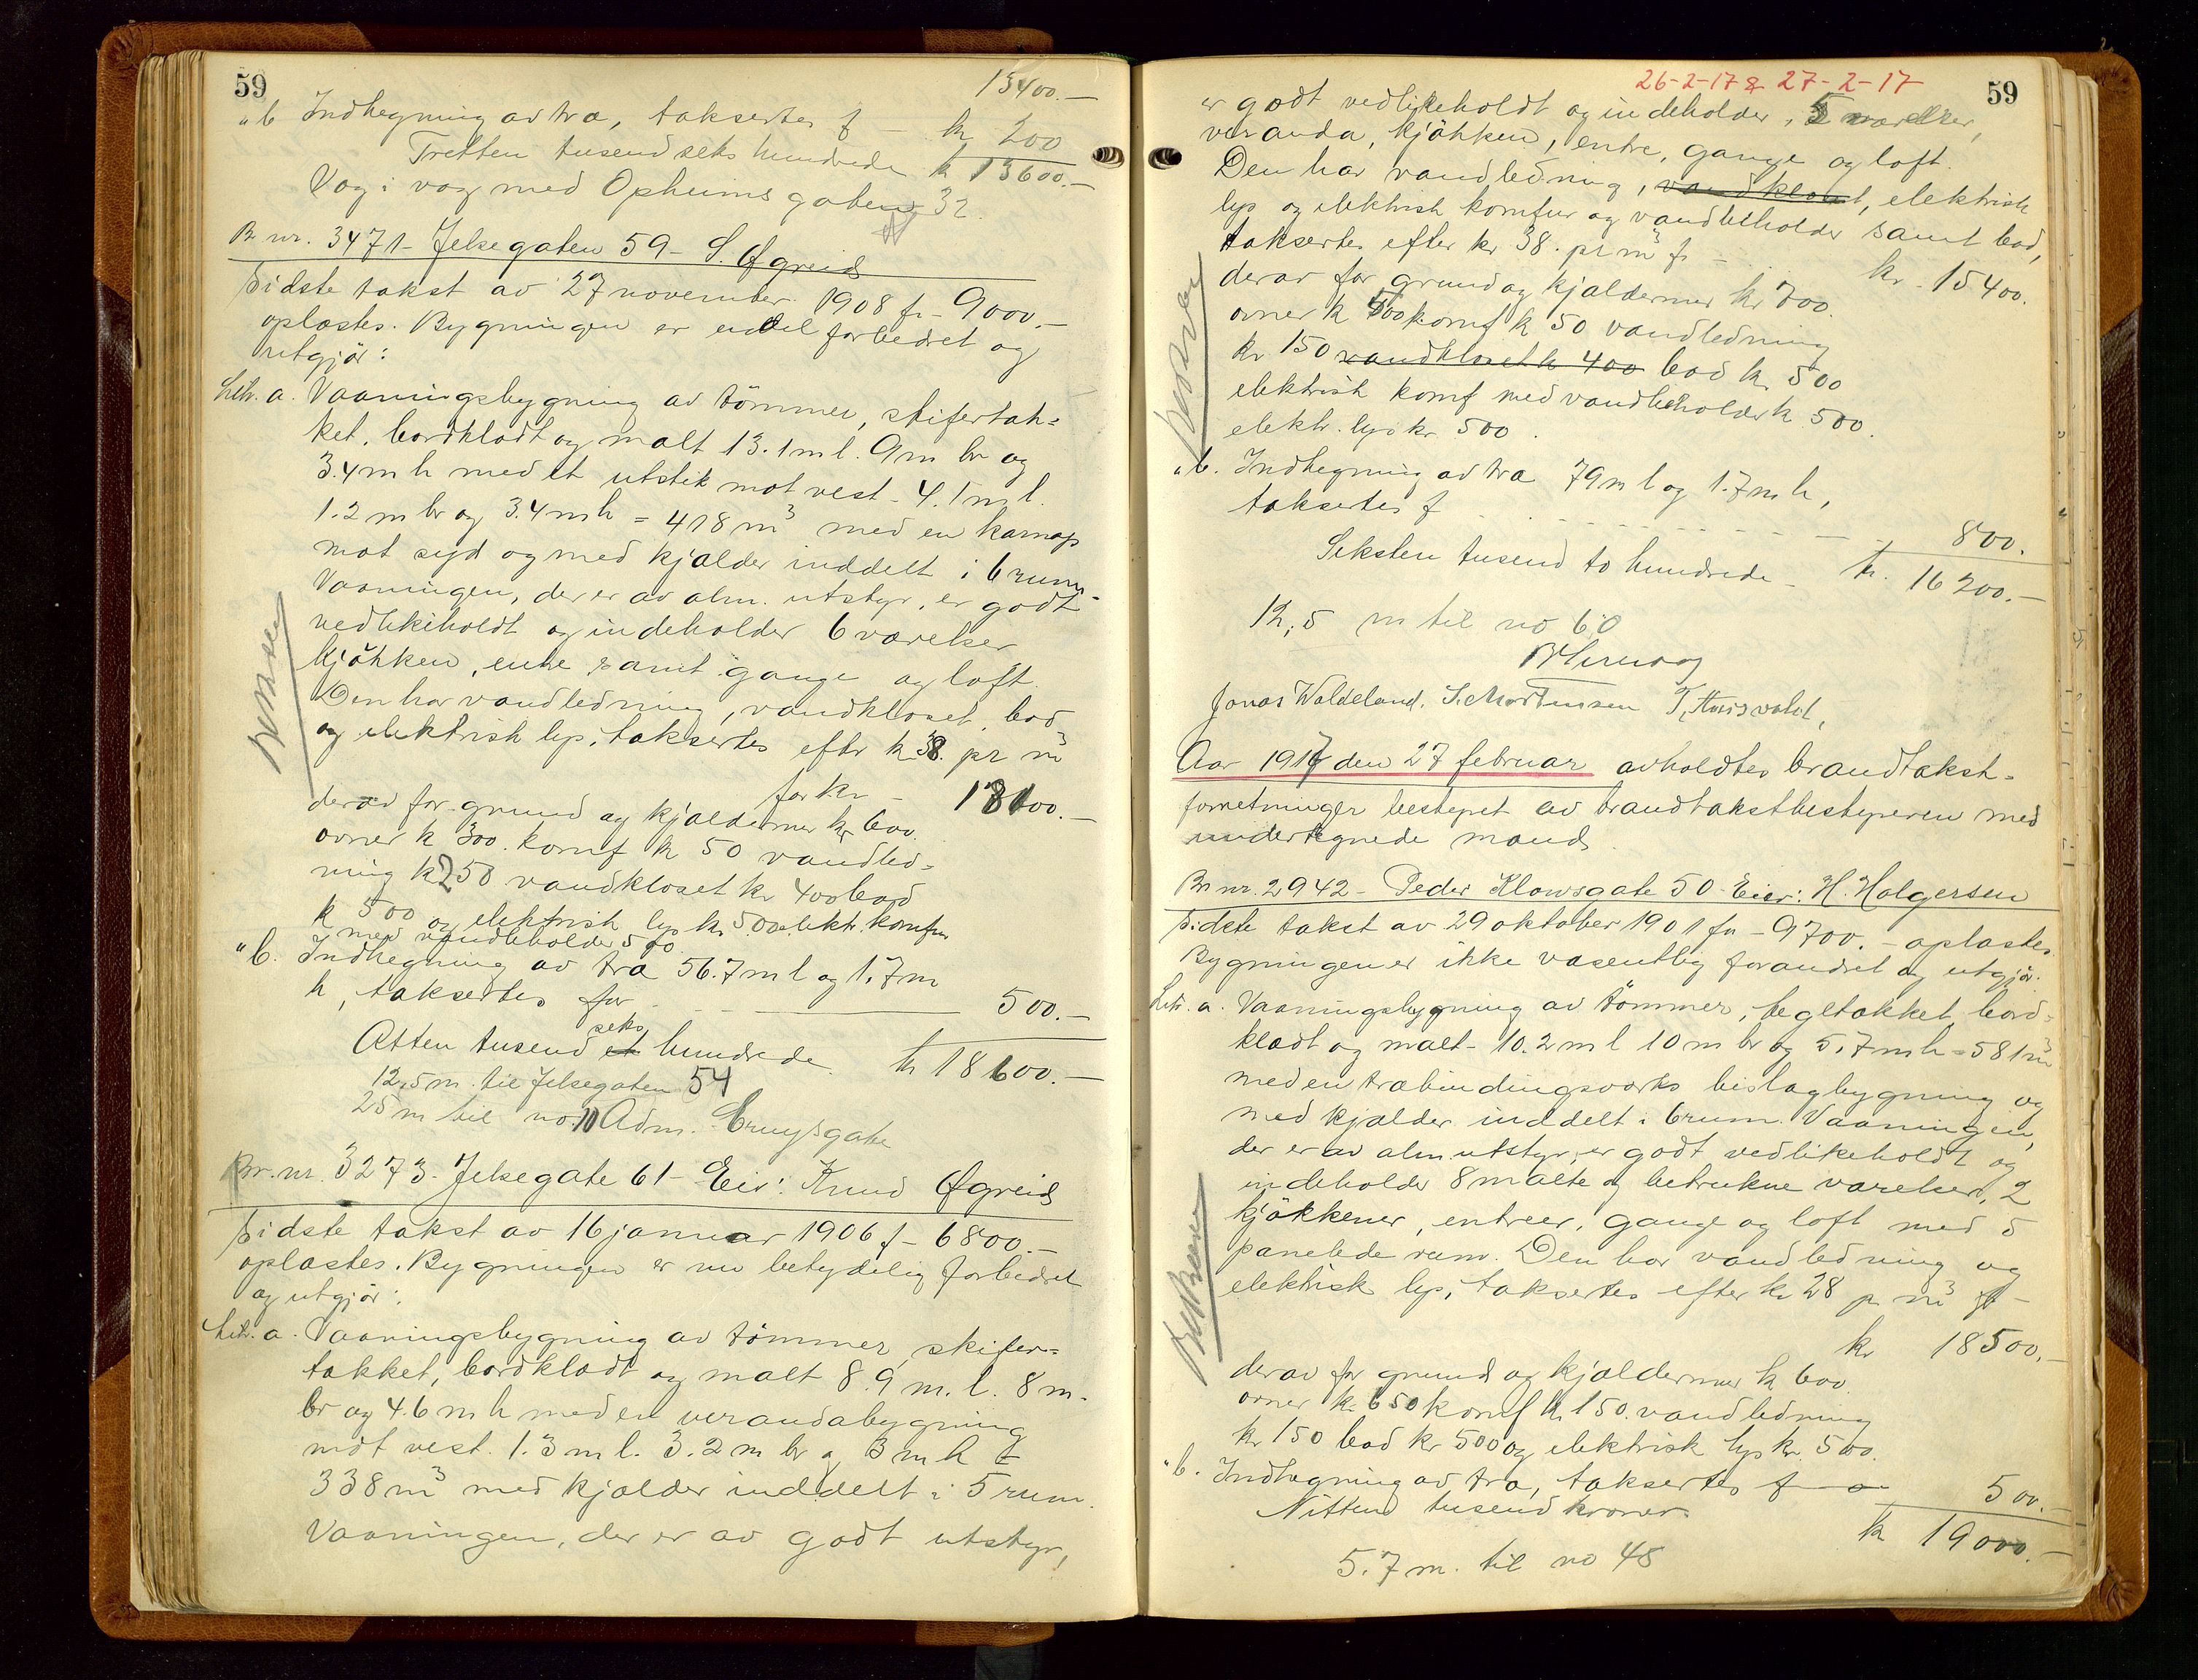 59
13400.—
" b Indhegning av træ, taksertes f — kr 200
Tretten tusend seks hundrede kr 13600.—
Væg i væg med Opheimsgaten 32.
Br nr. 3471 - Jelsegaten 59 - S. Øgreid
Sidste takst av 27 november 1908 fr - 9000.—
oplæstes. Bygningen er endel forbedret og
utgjör:
Litr. a. Vaaningsbygning av tömmer, skifertæk=
ket, bordklædt og malt 13.1 m l. 9 m br og
3.4 m h med et utstik mot vest - 4.1 m l.
1.2 m br og 3.4 m h = 418 m³ med en karnap
mot syd og med kjælder inddelt i 6 rum.
Vaaningen, der er av alm. utstyr, er godt
vedlikeholdt og indeholder 6 værelser
kjökken, entre samt gange og loft
Den har vandledning, vandkloset, bad
og elektrisk lys, taksertes efter kr 38. pr m³
for kr — 18100.—
derav for grund og kjældermur kr 600.
ovner kr 300. komf kr 50 vandled=
ning kr 250 vandkloset kr 400 bad
kr 500 og elektrisk lys kr 500 elektr. komfur
med vandbeholder 500
" b. Indhegning av træ 56.7 m l og 1.7 m
h, taksertes for — 500.—
seks
Atten tusend et hundrede kr 18600.—
12,5 m. til Jelsegaten 54
25 m til no. 10 Adm. Cruysgate
Br. nr. 3273 - Jelsegate 61 - Eier: Knud Øgreid
Sidste takst av 16 januar 1906 f - 6800.—
oplæstes. Bygningen er nu betydelig forbedret
og utgjör:
Litr. a. Vaaningsbygning av tömmer, skifer=
tækket, bordklædt og malt 8.9 m. l. 8 m.
br og 4.6 m h med en verandabygning
mot vest. 1.3 m l. 3.2 m br og 3 m h =
338 m³ med kjælder inddelt i 5 rum.
Vaaningen, der er av godt utstyr,
26-2-17 & 27-2-17
59
er godt vedlikeholdt og indeholder, 5 værelser,
veranda, kjökken, entre, gange og loft.
Den har vandledning, vandkloset, elektrisk
lys og elektrisk komfur og vandbeholder samt bad,
taksertes efter kr 38. pr m³ fr — kr. 15400.
derav for grund og kjældermur kr 700.
ovner kr 500 komf kr 50 vandledning
kr 150 vandkloset kr 400 bad kr. 500
elektrisk komf med vandbeholder kr 500.
elektr. lys kr 500.
" b. Indhegning av træ 79 m l og 1.7 m h,
taksertes f — 800.
Seksten tusend to hundrede — kr. 16200.—
12,5 m til no 60
Jonas Waldeland. S. Mortensen T. Auswalt,
Aar 1917 den 27 februar avholdtes brandtakst=
forretninger bestyret av brandtakstbestyreren med
undertegnede mænd.
Br nr. 2942 - Peder Klowsgate 50 - Eier: H. Holgersen
Sidste takst av 29 oktober 1901 fr - 9700.— oplæstes
Bygningen er ikke væsentlig forandret og utgjör:
Litr. a. Vaaningsbygning av tömmer, tegltækket, bord=
klædt og malt - 10.2 m l 10 m br og 5.7 m h = 581 m³
med en træbindingsverks bislagbygning og
med kjælder inddelt i 6 rum. Vaaningen,
der er av alm utstyr, er godt vedlikeholdt og
indeholder 8 malte og betrukne værelser, 2
kjökkener, entreer, gange og loft med 5
panelede rum. Den har vandledning og
elektrisk lys, taksertes efter kr 28 pr m³ fr —
kr 18500.—
derav for grund og kjældermur kr 600.
ovner kr. 650 komf kr 150. vandledning
kr 150 bad kr 500 og elektrisk lys kr. 500.
" b. Indhegning av træ, taksertes f — 500.—
Nitten tusend kroner. kr 19000.—
5.7 m. til no 48